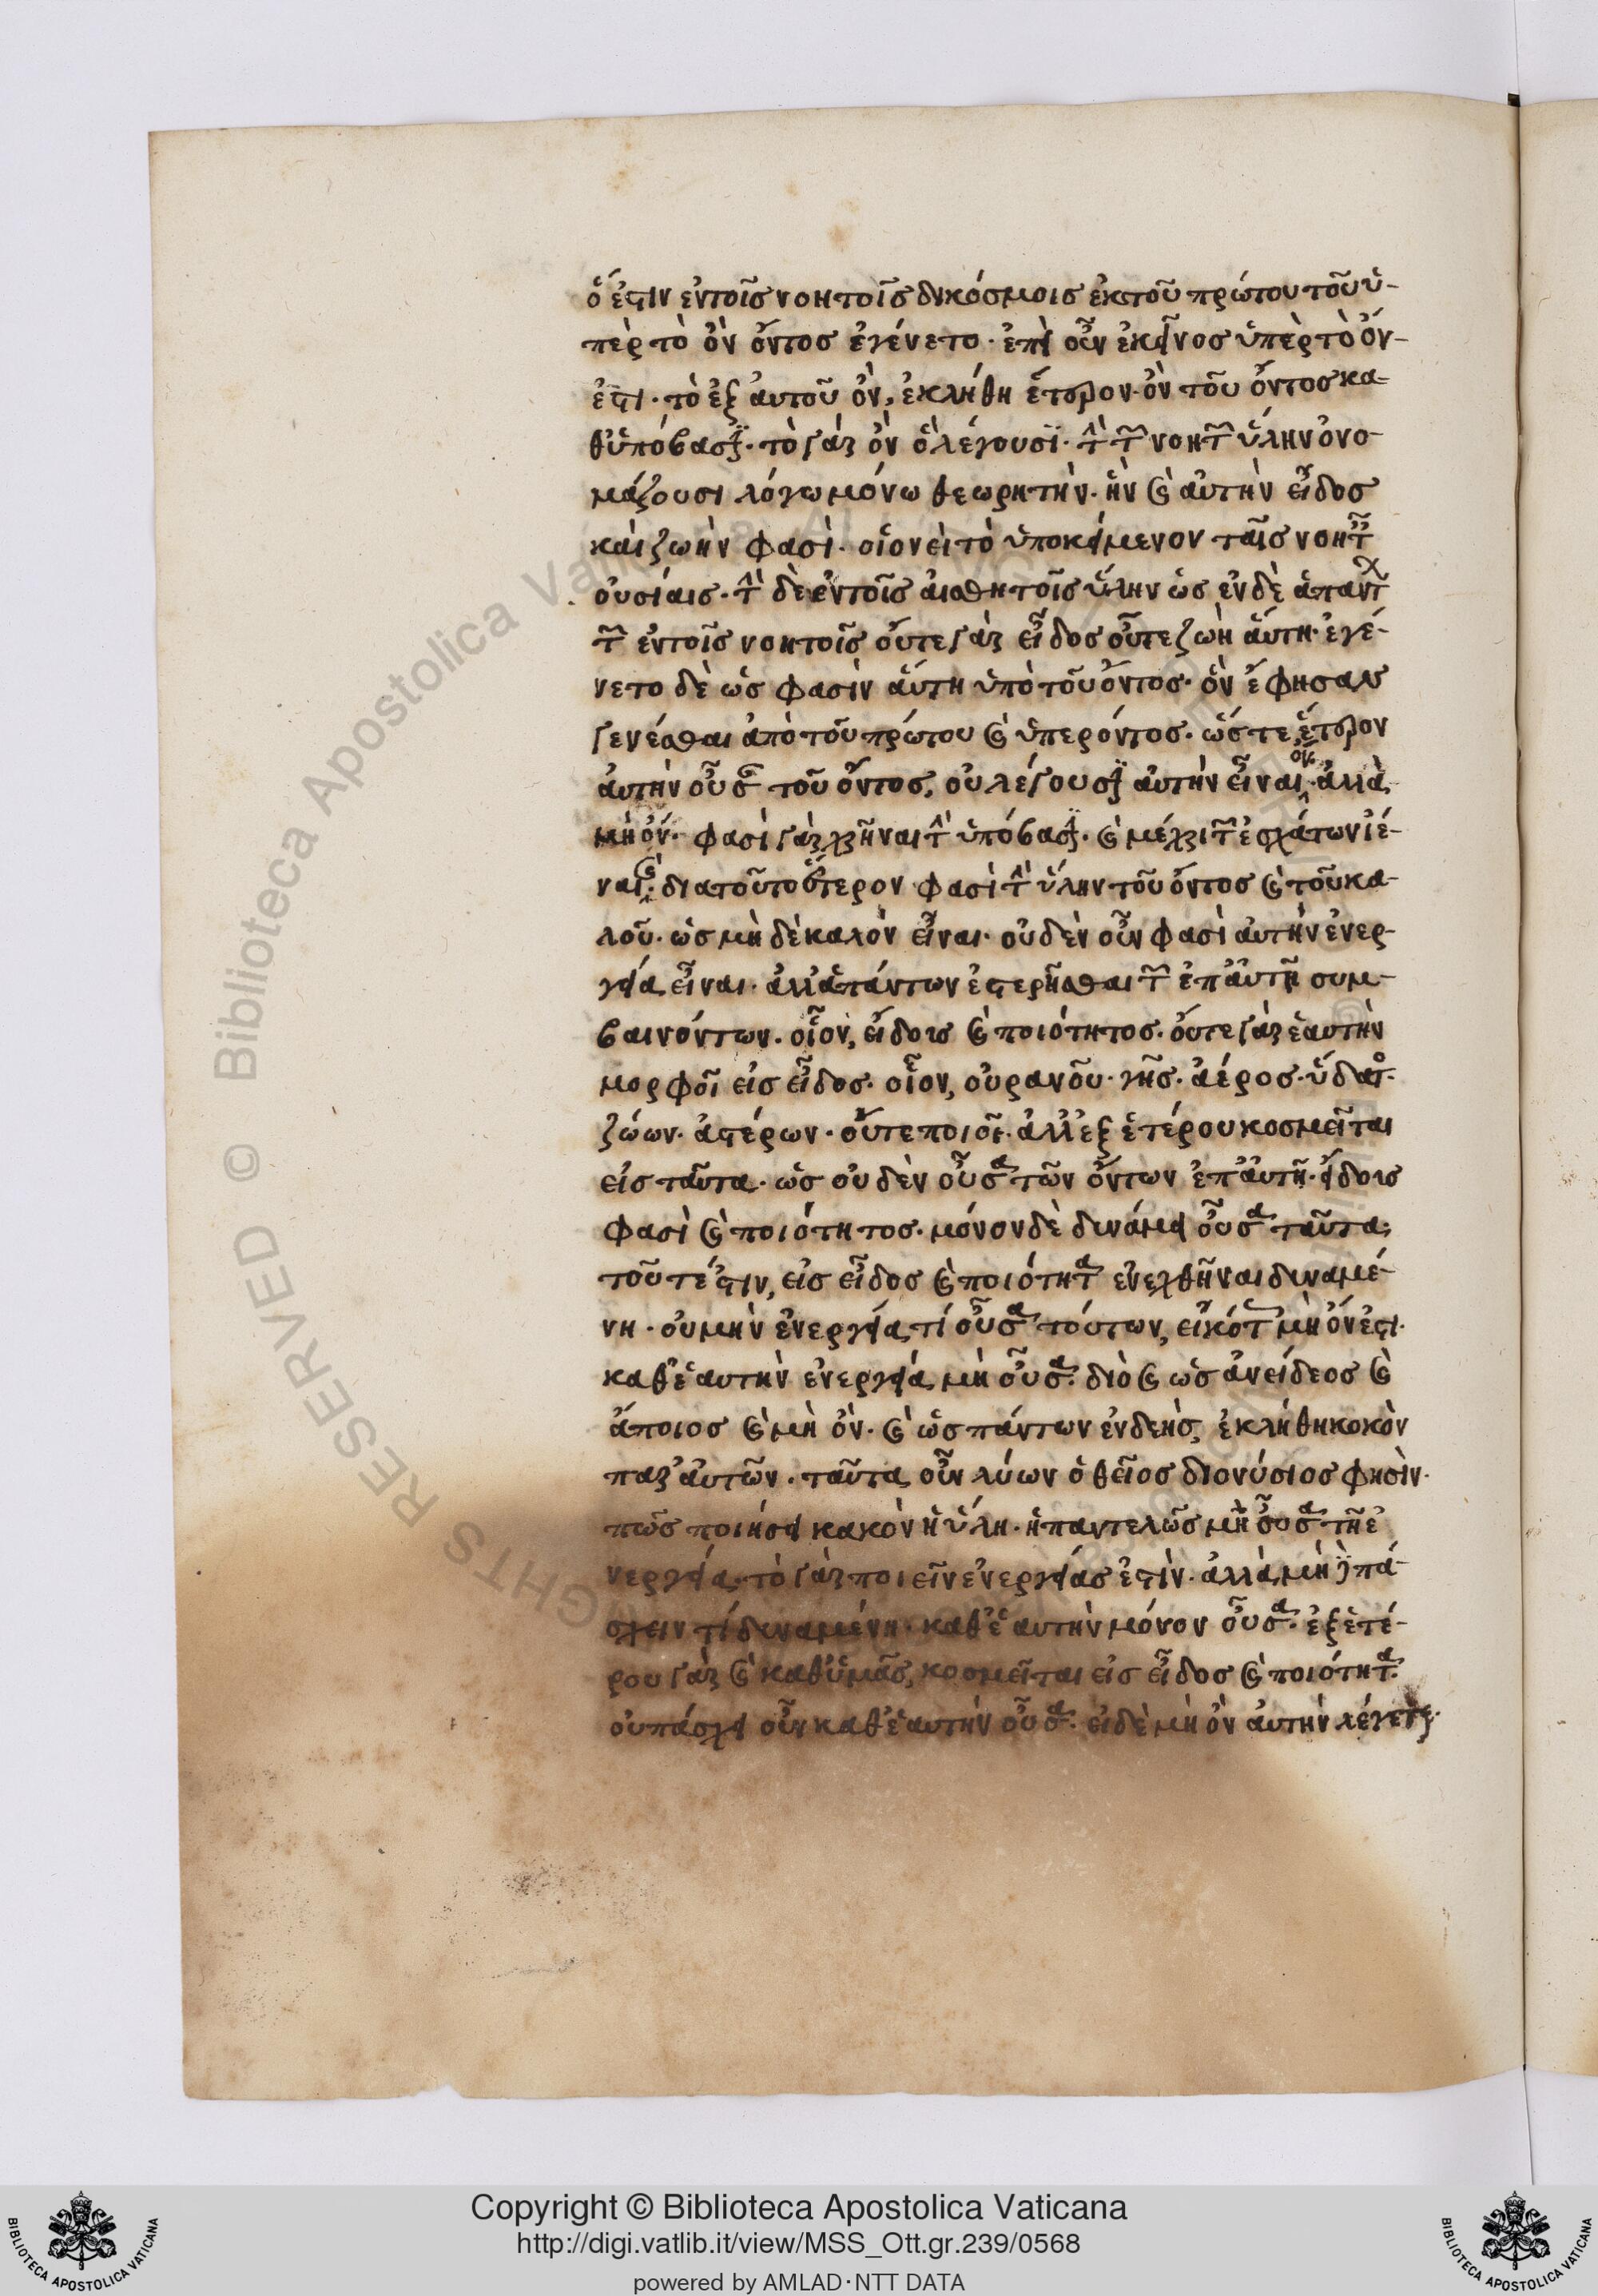 ὅ ἐστιν ἐν τοῖς νοητοῖς διακόσμοις ἐκ τοῦ πρώτου τοῦ ὑ-
πὲρ τὸ ὂν ὄντος ἐγένετο· ἐπεὶ οὖν ἐκεῖνος ὑπὲρ τὸ ὄν
ἐστι· τὸ ἐξ αὐτοῦ ὂν, ἐκλήθη ἕτερον· ὂν τοῦ ὄντος κα-
θ' ὑπόβασιν· τὸ γὰρ ὂν ὃ λέγουσϊ· τὴν τῶν νοητῶν ὕλην ὀνο-
μάζουσι λόγω μόνω θεωρητὴν· ἣν καὶ αὐτὴν εἶδος
καὶ ζωὴν φασὶ· οἱονεὶ τὸ ὑποκείμενον ταῖς νοητ
οὐσίαις· τὴν δὲ ἐν τοῖς αἰσθητοῖς ὕλην ὡς ἐνδὲ ἁπαντ
τῶν ἐν τοῖς νοητοῖς οὔτε γὰρ εἶδος οὔτε ζωὴ αὕτη· ἐγέ-
νετο δὲ ὥς φασὶν αὕτη ὑπὸ τοῦ ὄντος· ὃν ἔφησαν
γενέσθαι ἀπὸ τοῦ πρώτου καὶ ὑπερόντος· ὥστε ἕτερον
αὐτὴν οὖσαν τοῦ ὄντος, οὐ λέγουσιν αὐτὴν εἶναι ὂν· ἀλλὰ
μὴ ὄν· φασὶ γὰρ χρῆναι τὴν ὑπόβασιν· καὶ μέχρι τῶν ἐσχάτων ἰέ-
ναι· καὶ διατοῦτο ὕστερον φασὶ τὴν ὕλην τοῦ ὄντος καὶ τοῦ κα-
λοῦ· ὡς μὴ δὲ καλὸν εἶναι· οὐδὲν οὖν φασὶ αὐτὴν ἐνερ-
γεία εἶναι· ἀλλ' ἁπάντων ἐστερῆσθαι τῶν ἐπ' αὐτῆ συμ-
βαινόντων· οἷον, εἴδους καὶ ποιότητος· οὔτε γὰρ ἑαυτὴν
μορφοῖ εἰς εἶδος· οἷον, οὐρανοῦ· γῆς· ἀέρος· ὕδατος·
ζώων· ἀστέρων· οὔτε ποιοῖ· ἀλλ' ἐξ ἑτέρου κοσμεῖται
εἰς ταῦτα· ὡς οὐδὲν οὖσα τῶν ὄντων ἐπ' αὐτῆ· εἴδους
φασὶ καὶ ποιότητος· μόνον δὲ δυνάμει οὖσα ταῦτα·
τοῦτέστιν, εἰς εἶδος καὶ ποιότητα ἐνεχθῆναι δυναμέ-
νη· οὐ μὴν ἐνεργεία τί οὖσα τούτων, εἰκότως μὴ ὄν ἐστι·
καθ' ἑαυτὴν ἐνεργεία μὴ οὖσα· διὸ καὶ ὡς ἀνείδεος καὶ
ἄποιος καὶ μὴ ὂν· καὶ ὡς πάντων ἐνδεὴς, ἐκλήθη κακὸν
παρ' αὐτῶν· ταῦτα οὖν λύων ὁ θεῖος διονύσιος φησὶν·
πῶς ποιήσει κακὸν ἡ ὕλη· ἡ παντελῶς μὴ οὖσα τῆ ἐ
νεργεία· τὸ γὰρ ποιεῖν ἐνεργείας ἐστὶν· ἀλλὰ μὴ πά-
σχειν τί δυναμένη· καθ' ἑαυτὴν μόνον οὖσα· ἐξ ἑτέ-
ρου γὰρ καὶ καθ' ὑμᾶς, κοσμεῖται εἰς εἶδος καὶ ποιότητα·
οὐ πάσχει οὖν καθ' ἑαυτὴν οὖσα· εἰ δὲ μὴ ὂν αὐτὴν λέγετε·
Copyright © Biblioteca Apostolica Vaticana
http://digi.vatlib.it/view/MSS_Ott.gr.239/0568
powered by AMLAD·NTT DATA
BIBLIOTECA APOSTOLICA VATICANA
BIBLIOTECA APOSTOLICA VATICANA